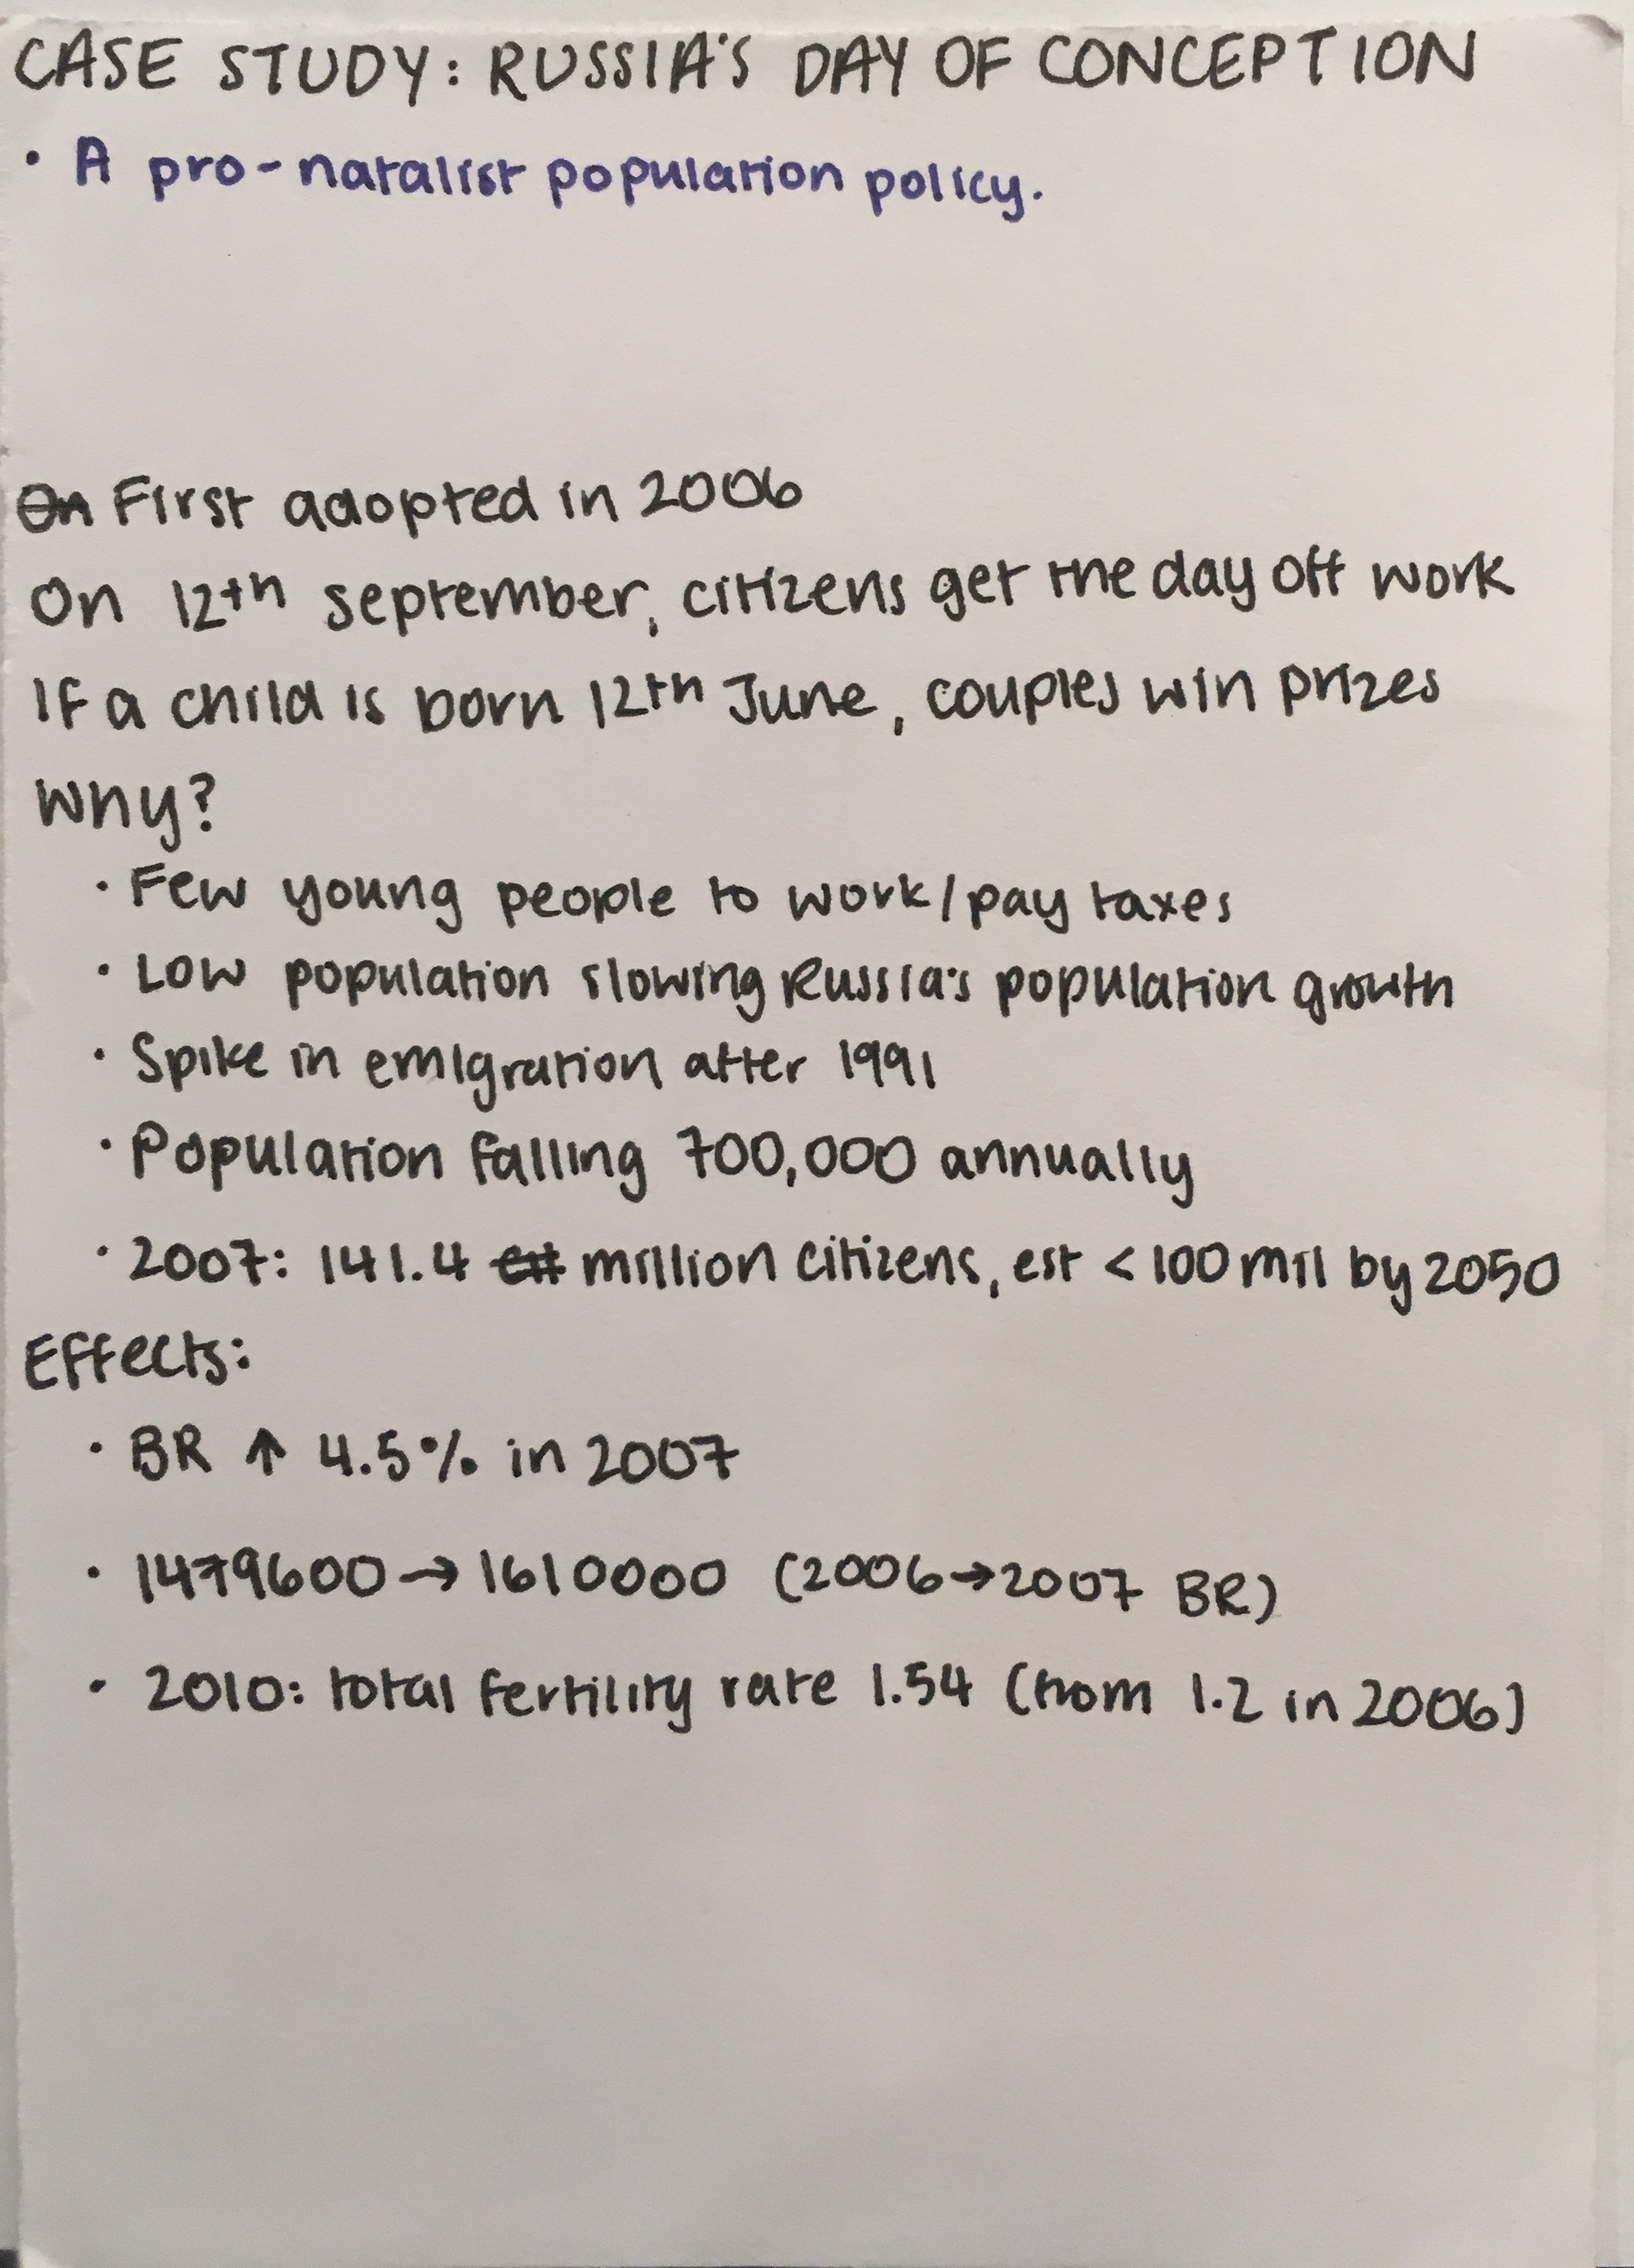 CASE STUDY: RUSSIA'S DAY OF CONCEPTION
• A pro-natalist population policy.
On First adopted in 2006
On 12th september, citizens get the day off work
If a child is born 12th June, couples win prizes
Why?
• Few young people to work/pay taxes
• Low population slowing Russia's population growth
• Spike in emigration after 1991
• Population falling 700,000 annually
• 2007: 141.4 million citizens, est < 100 mil by 2050
Effects:
• BR ↑ 4.5% in 2007
• 1479600 → 1610000 (2006 → 2007 BR)
• 2010: total fertility rate 1.54 (from 1.2 in 2006)